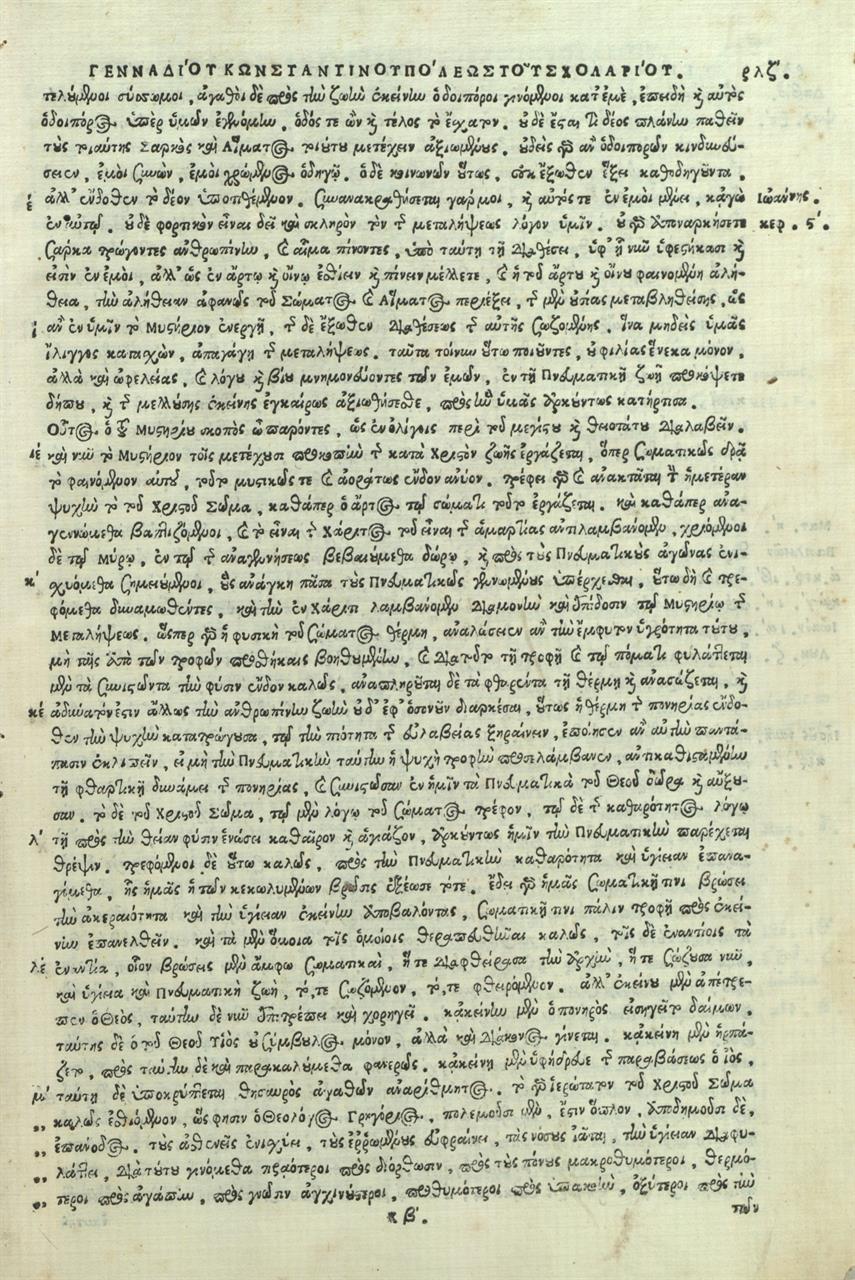 ΓΕΝΝΑΔΙ΄ΟΥ ΚΩΝΣΤΑΝΤΙΝΟΥΠΟ΄ΛΕΩΣ ΤΟΥ͂ ΣΧΟΛΑΡΙ΄ΟΥ. ρλζʹ.
τελούμενοι σύσσωμοι, ἀγαθοὶ δὲ πρὸς τὴν ζωὴν ἐκείνην ὁδοιπόροι γινόμενοι κατ' ἐμὲ, ἐπειδὴ καὶ αὐτὸς
ὁδοιπόρος ὑπὲρ ὑμῶν ἐγενόμην, ὁδός τε ὢν καὶ τέλος τὸ ἔσχατον. οὐδὲ ἔσται τι δέος πλάνην παθεῖν
τοὺς τοιαύτης Σαρκὸς καὶ Αἵματος τούτου μετέχειν ἀξιουμένους. οὐδεὶς γὰρ ἂν ὁδοιπορῶν κινδυνεύ-
σειεν, ἐμοὶ συνὼν, ἐμοὶ χρώμενος ὁδηγῷ. ὁ δὲ κοινωνῶν οὕτως, οὐκ ἔξωθεν ἕξει καθοδηγοῦντα,
ἀλλ' ἔνδοθεν τὸ δέον ὑποτιθέμενον. συνανακραθήσεται γάρ μοι, καὶ αὐτός τε ἐν ἐμοὶ μένει, κἀγὼ
Ἰωάννης.
ἐν αὐτῷ. οὐδὲ φορτικὸν εἶναι δεῖ καὶ σκληρὸν τὸν τῆς μεταλήψεως λόγον ὑμῖν. οὐ γὰρ ἀποναρκήσετε
κεφ. ϛʹ.
σάρκα τρώγοντες ἀνθρωπίνην, καὶ αἷμα πίνοντες, ὑπὸ ταύτῃ τῇ διαθέσει, ὑφ' ᾗ νῦν ὑφεστήκασι καὶ
εἰσὶν ἐν ἐμοὶ, ἀλλ' ὡς ἐν ἄρτῳ καὶ οἴνῳ ἐσθίειν καὶ πίνειν μέλλετε, καὶ ἡ τοῦ ἄρτου καὶ οἴνου φαινομένη ἀλή-
θεια, τὴν ἀλήθειαν ἀφανῶς τοῦ Σώματος καὶ Αἵματος περιέξει, τῆς μὲν οὐσίας μεταβληθείσης, ὡς
ἂν ἐν ὑμῖν τὸ Μυστήριον ἐνεργῇ, τῆς δὲ ἔξωθεν διαθέσεως τῆς αὐτῆς σωζομένης, ἵνα μηδεὶς ὑμᾶς
ἴλιγγος κατασχὼν, ἀπαγάγῃ τῆς μεταλήψεως. ταῦτα τοίνυν οὕτω ποιοῦντες, οὐ φιλίας ἕνεκα μόνον,
ἀλλὰ καὶ ὠφελείας, καὶ λόγου καὶ βίου μνημονεύοντες τῶν ἐμῶν, ἐν τῇ Πνευματικῇ ζωῇ προκόψετε
δήπου, καὶ τῆς μελλούσης ἐκείνης ἐγκαίρως ἀξιωθήσεσθε, πρὸς ἣν ὑμᾶς ἀρκούντως κατήρτισα.
Οὗτος ὁ τοῦ Μυστηρίου σκοπὸς ὦ παρόντες, ὡς ἐν ὀλίγοις περὶ τοῦ μεγίστου καὶ θειοτάτου διαλαβεῖν.
καὶ νῦν τὸ Μυστήριον τοῖς μετέχουσι προκοπὴν τῆς κατὰ Χριστὸν ζωῆς ἐργάζεται, ὅπερ σωματικῶς δρᾷ
τὸ φαινόμενον αὐτοῦ, τοῦτο μυστικῶς τε καὶ ἀοράτως ἔνδον ἀνύον. τρέφει γὰρ καὶ ἀνακτᾶται τὴν ἡμετέραν
ψυχὴν τὸ τοῦ Χριστοῦ Σῶμα, καθάπερ ὁ ἄρτος τῷ σώματι τοῦτο ἐργάζεται. καὶ καθάπερ ἀνα-
γεννώμεθα βαπτιζόμενοι, καὶ τὸ εἶναι τῆς Χάριτος τοῦ εἶναι τῆς ἁμαρτίας ἀντιλαμβάνομεν, χριόμενοι
δὲ τῷ Μύρῳ, ἐν τῷ τῆς ἀναγεννήσεως βεβαιούμεθα δώρῳ, καὶ πρὸς τοὺς Πνευματικοὺς ἀγῶνας ἐνι-
σχυόμεθα σημειούμενοι, οὓς ἀνάγκη πᾶσα τοὺς Πνευματικῶς γεννωμένους ὑπέρχεσθαι, οὕτω δὴ καὶ τρε-
φόμεθα δυναμωθέντες, καὶ τὴν ἐν Χάριτι λαμβάνομεν διαμονὴν καὶ ἐπίδοσιν τῷ Μυστηρίῳ τῆς
Μεταλήψεως. ὥσπερ γὰρ ἡ φυσικὴ τοῦ σώματος θέρμη, ἀναλώσειεν ἂν τὴν ἔμφυτον ὑγρότητα τούτου,
μὴ ταῖς ἀπὸ τῶν τροφῶν προσθήκαις βοηθουμένην, καὶ διὰ τοῦτο τῇ τροφῇ καὶ τῷ πόματι φυλάττεται
μὲν τὰ συνιστῶντα τὴν φύσιν ἔνδον καλῶς, ἀναπληροῦται δὲ τὰ φθαρέντα τῇ θέρμῃ καὶ ἀνασώζεται, καὶ
ἀδύνατόν ἐστιν ἄλλως τὴν ἀνθρωπίνην ζωὴν οὐδ' ἐφ' ὁσονοῦν διαρκέσαι, οὕτως ἡ θέρμη τῆς πονηρίας ἔνδο-
θεν τὴν ψυχὴν κατατρώγουσα, τῷ τὴν πιότητα τῆς εὐλαβείας ξηραίνειν, ἐποίησεν ἂν αὐτὴν παντά-
πασιν ἐκλιπεῖν, εἰ μὴ τὴν Πνευματικὴν ταύτην ἡ ψυχὴ τροφὴν προσελάμβανεν, ἀντικαθισταμένην
τῇ φθαρτικῇ δυνάμει τῆς πονηρίας, καὶ συνιστῶσαν ἐν ἡμῖν τὰ Πνευματικὰ τοῦ Θεοῦ δῶρα καὶ αὔξου-
σαν. τὸ δὲ τοῦ Χριστοῦ Σῶμα, τῷ μὲν λόγῳ τοῦ σώματος τρέφον, τῷ δὲ τῆς καθαρότητος λόγῳ
τῇ πρὸς τὴν θείαν φύσιν ἑνώσει καθαῖρον καὶ ἁγιάζον, ἀρκούντως ἡμῖν τὴν Πνευματικὴν παρέχεται
θρέψιν. τρεφόμενοι δὲ οὕτω καλῶς, πρὸς τὴν Πνευματικὴν καθαρότητα καὶ ὑγίειαν ἐπανα-
γόμεθα, ἧς ἡμᾶς ἡ τῶν κεκωλυμένων βρῶσις ἐξέωσε τότε. ἔδει γὰρ ἡμᾶς σωματικῇ τινι βρώσει
τὴν ἀκεραιότητα καὶ τὴν ὑγίειαν ἐκείνην ἀποβαλόντας, σωματικῇ τινι πάλιν τροφῇ πρὸς ἐκεί-
νην ἐπανελθεῖν. καὶ τὰ μὲν ὅμοια τοῖς ὁμοίοις θεραπευθῆναι καλῶς, τοῖς δὲ ἐναντίοις τὰ
ἐναντία, οἷον βρώσεις μὲν ἄμφω σωματικαὶ, ἥ τε διαφθείρασα τὴν ἀρχὴν, ἥ τε σώζουσα νῦν,
καὶ ὑγίεια καὶ Πνευματικὴ ζωὴ, τό, τε σωζόμενον, τό, τε φθειρόμενον. ἀλλ' ἐκείνου μὲν ἀπέτρε-
πεν ὁ Θεὸς, ταύτην δὲ νῦν ἐπιτρέπει καὶ χορηγεῖ. κἀκείνην μὲν ὁ πονηρὸς εἰσηγεῖτο δαίμων,
ταύτης δὲ ὁ τοῦ Θεοῦ Υἱὸς οὐ σύμβουλος μόνον, ἀλλὰ καὶ διάκονος γίνεται. κἀκείνη μὲν ἡρπά-
ζετο, πρὸς ταύτην δὲ καὶ παρακαλούμεθα φανερῶς. κἀκείνῃ μὲν ὑφήδρευε τῆς παραβάσεως ὁ ἰὸς,
ταύτῃ δὲ ὑποκρύπτεται θησαυρὸς ἀγαθῶν ἀναρίθμητος. τὸ γὰρ ἱερώτατον τοῦ Χριστοῦ Σῶμα
καλῶς ἐσθιόμενον, ὥς φησιν ὁ Θεολόγος Γρηγόριος, πολεμοῦσι μὲν, ἔστιν ὅπλον, ἀποδημοῦσι δὲ,
ἐπάνοδος. τοὺς ἀσθενεῖς ἐνισχύει, τοὺς ἐῤῥωμένους εὐφραίνει, τὰς νόσους ἰᾶται, τὴν ὑγίειαν διαφυ-
λάττει, διὰ τούτου γινόμεθα πραότεροι πρὸς διόρθωσιν, πρὸς τοὺς πόνους μακροθυμότεροι, θερμό-
τεροι πρὸς ἀγάπην, πρὸς γνῶσιν ἀγχινούστεροι, προθυμότεροι πρὸς ὑπακοὴν, ὀξύτεροι πρὸς τὴν
βʹ. τῶν